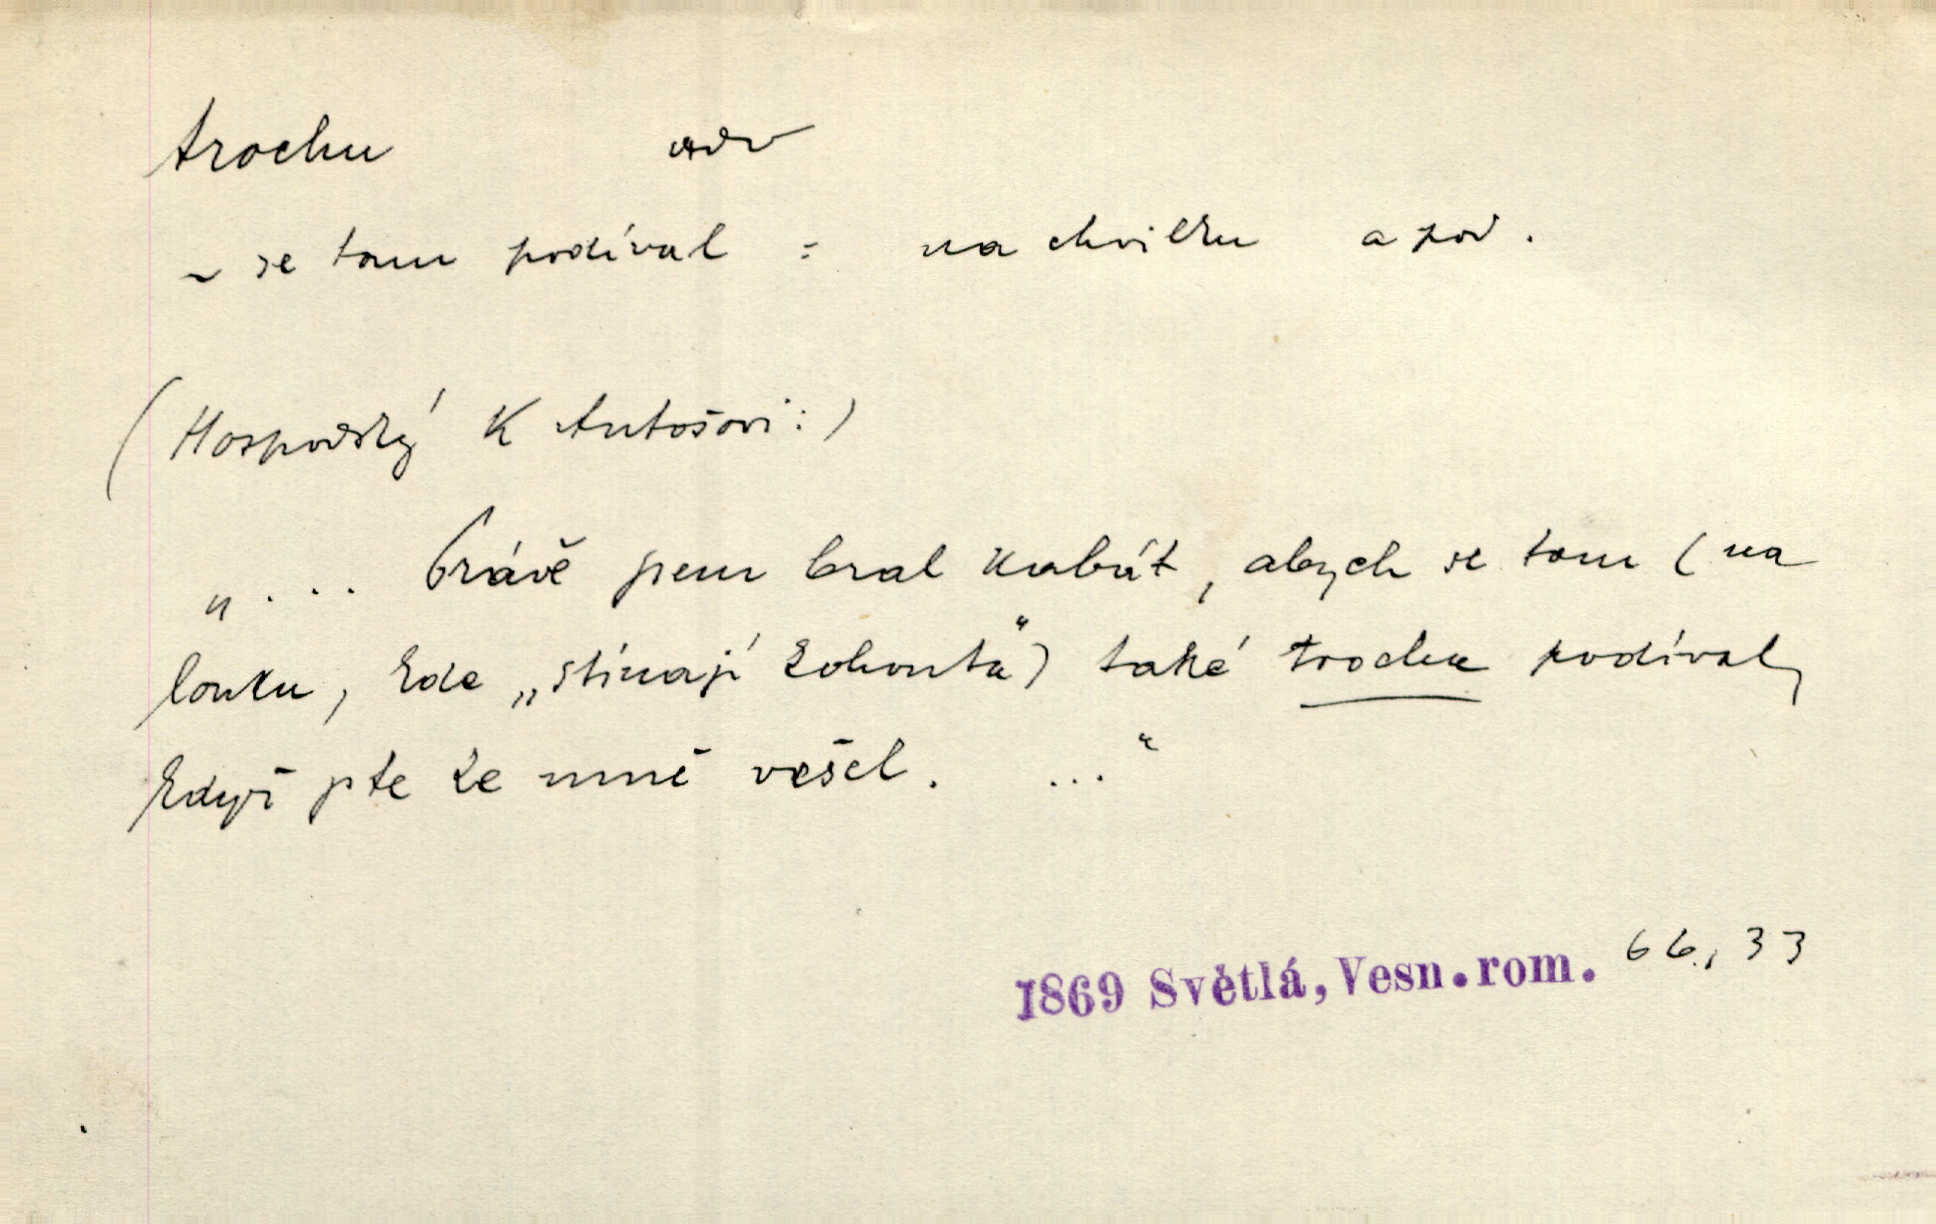 trochu adv
~ se tam podíval = na chvilku a pod.
(Hospodský k Antošovi:)
„... Právě jsem bral kabát, abych se tam (na
louku, kde „stínají kohouta“) také trochu podíval,
když jste ke mně vešel. ...“
1869 Světlá, Vesn.rom. 66, 33